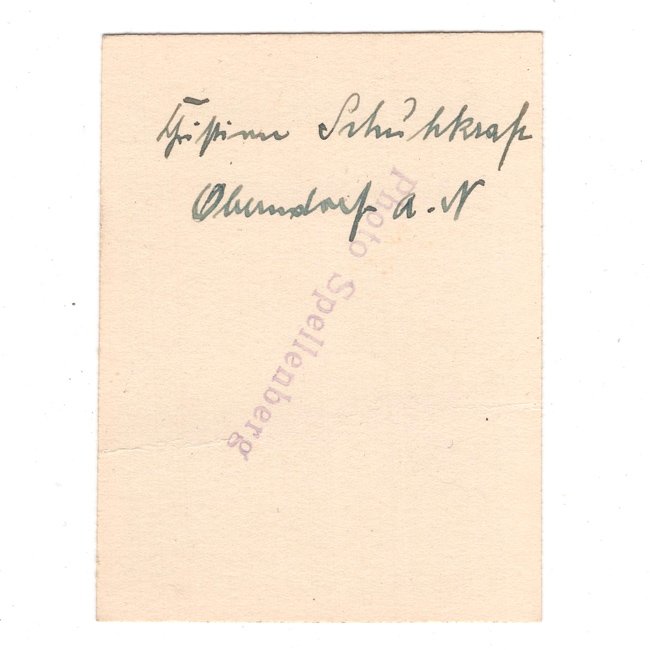 Christian Schuhkraft
Oberndorf a. N
Photo Spellenberg